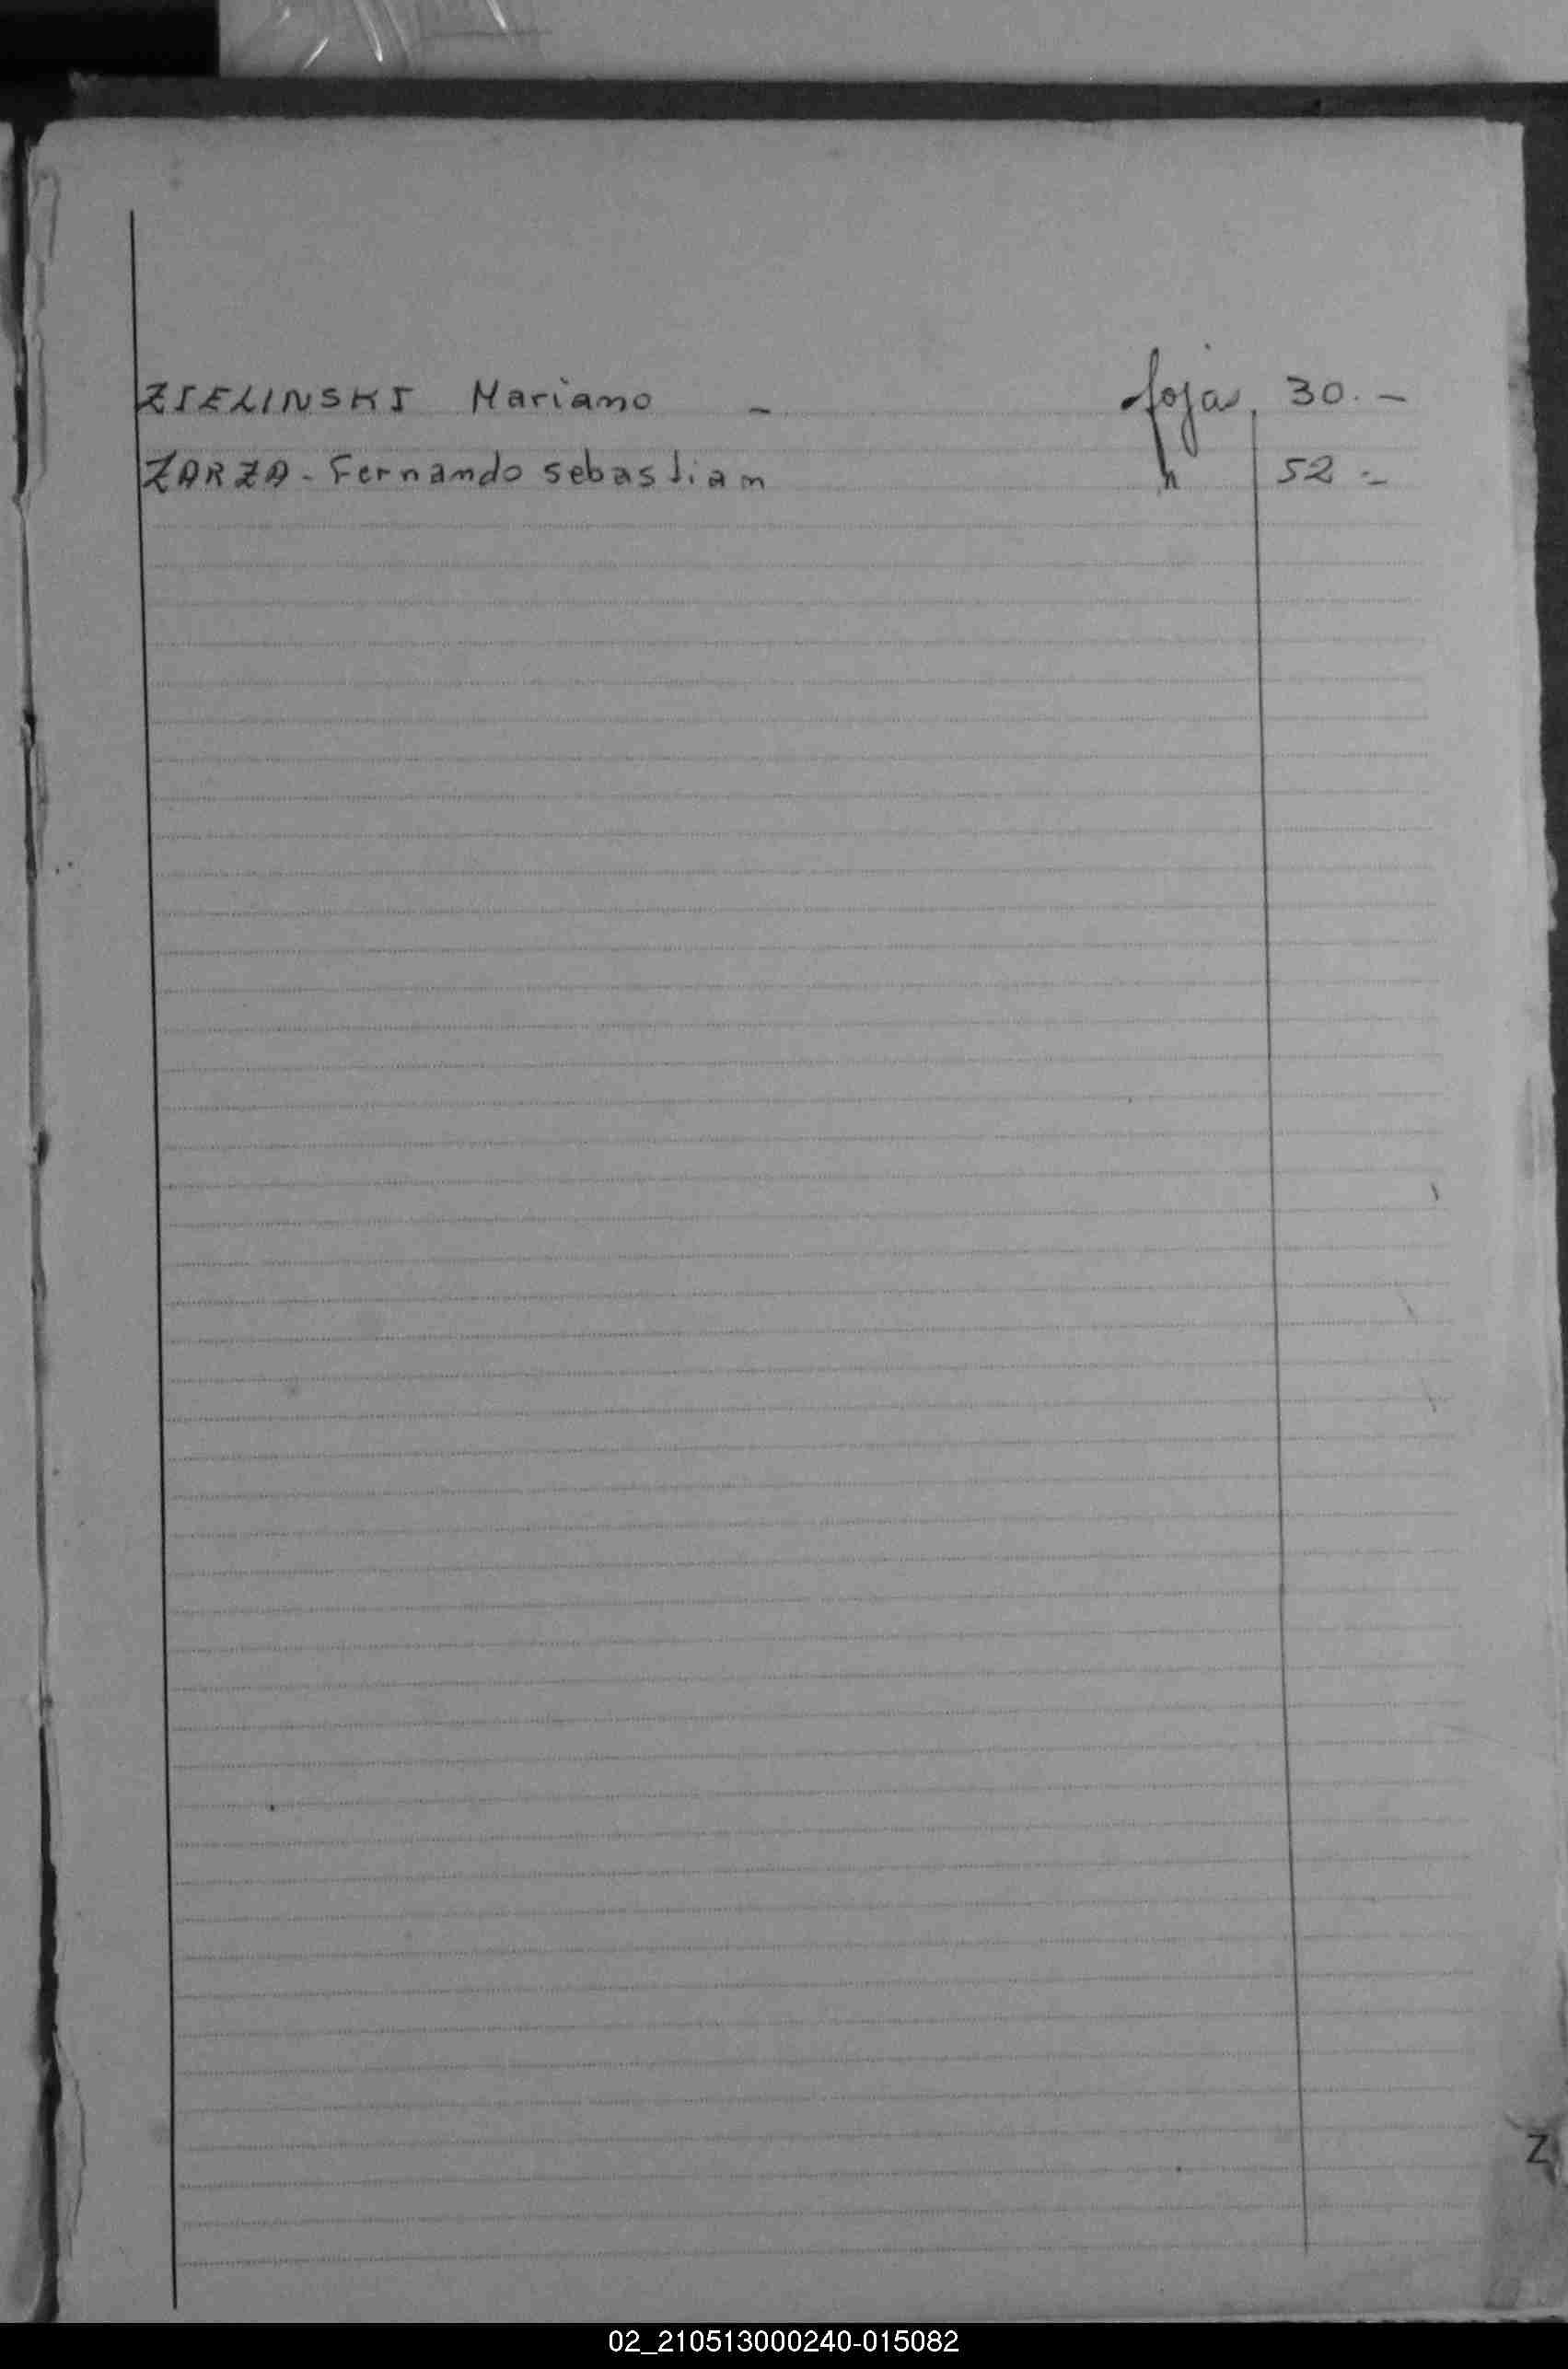 ZIELINSKI Mariano - fojas 30.-
ZARZA - Fernando sebastian " 52.-
Z
02_210513000240-015082